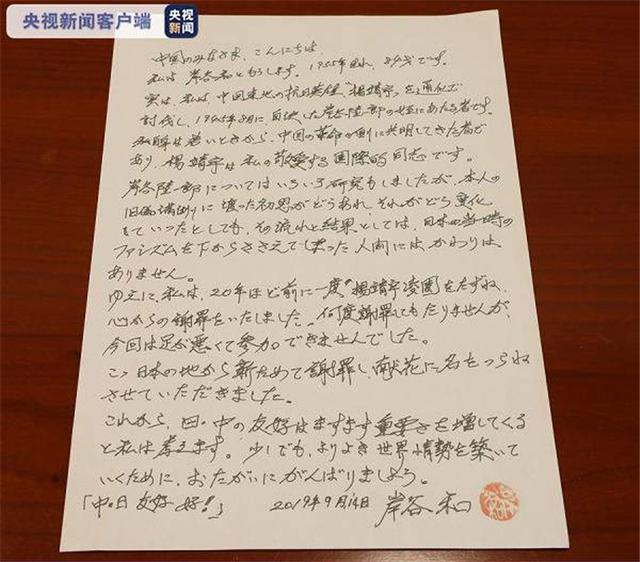 央视新闻客户端
中国のみなさま、こんにちは。
私は 岸谷和ともうします。19 5年生れ、 才です。
実は、私は、中国東北の抗日英雄"楊靖宇"を
討伐し、1945年8月に自決した岸谷隆一郎の にあたる者です。
私自身は若いときから、中国の革命の側に共鳴してきた者で
あり、楊靖宇は私の敬愛する国際的同志です。
岸谷隆一郎についてはいろいろ研究もしましたが、本人の
旧満 に懐った初思がどうあれ、それがどう変化
していったとしても、その流れと結果としては、日本の当時の
ファシズムを下からささえてしまった人間には、かわりは
ありません。
ゆえに、私は、20年ほど前に一度"楊靖宇陵園をたずね、
心からの謝罪をいたしました。何度謝罪してもたりませんが、
今回は足が悪くて参加できませんでした。
この日本の地から新ためて謝罪し、献花に名をつらね
させていただきました。
これから、日・中の友好はますます重要さを増してくる
と私は考えます。少しでも、よりよき世界情勢を築いて
いくために、おたがいにがんばりましょう。
「中・日 友好 好!」 2019年9月14日 岸谷 和